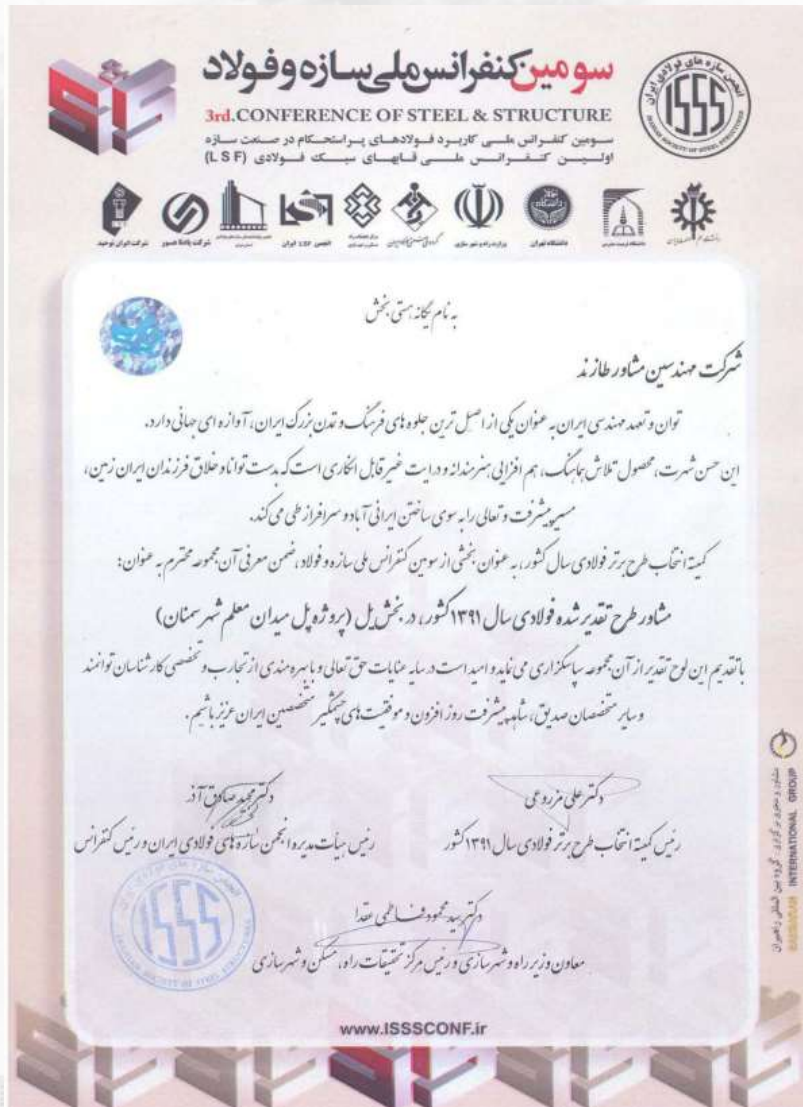 سومین کنفرانس ملی سازه و فولاد
3rd.CONFERENCE OF STEEL & STRUCTURE
سومین کنفرانس ملی کاربرد فولادهای پراستحکام در صنعت سازه
اولین کنفرانس ملی قابهای سبک فولادی (LSF)
انجمن سازه های فولادی ایران
ISSS
IRANIAN SOCIETY OF STEEL STRUCTURES
شرکت ایران توحید
شرکت پادنا جسور
انجمن LSF ایران
وزارت راه و شهرسازی
دانشگاه تهران
دانشگاه تربیت مدرس
به نام یگانه هستی بخش
شرکت مهندسین مشاور طازند
توان و تعهد مهندسی ایران به عنوان یکی از اصیل ترین جلوه های فرهنگ و تمدن بزرگ ایران، آوازه ای جهانی دارد.
این حسن شهرت، محصول تلاش هماهنگ، هم افزایی هنرمندانه و درایت غیر قابل انکاری است که بدست توانا و خلاق فرزندان ایران زمین،
مسیر پیشرفت و تعالی را به سوی ساختن ایرانی آباد و سرافراز طی می کند.
کمیته انتخاب طرح برتر فولادی سال کشور، به عنوان بخشی از سومین کنفرانس ملی سازه و فولاد، ضمن معرفی آن مجموعه محترم به عنوان:
مشاور طرح تقدیر شده فولادی سال ۱۳۹۱ کشور، در بخش پل (پروژه پل میدان معلم شهر سمنان)
با تقدیم این لوح تقدیر از آن مجموعه سپاسگزاری می نماید و امید است در سایه عنایات حق تعالی و با بهره مندی از تجارب و تخصصی کارشناسان توانمند
و سایر متخصصان صدیق، شاهد پیشرفت روز افزون و موفقیت های چشمگیر متخصصین ایران عزیز باشیم.
دکتر علی مزروعی
رئیس کمیته انتخاب طرح برتر فولادی سال ۱۳۹۱ کشور
دکتر مجید صادق آذر
رئیس هیأت مدیره انجمن سازه های فولادی ایران و رئیس کنفرانس
دکتر سید محمود فاطمی عقدا
معاون وزیر راه و شهرسازی و رئیس مرکز تحقیقات راه، مسکن و شهرسازی
ISSS
www.ISSSCONF.ir
مشاور و مجری برگزاری: گروه بین المللی راهبران
INTERNATIONAL GROUP